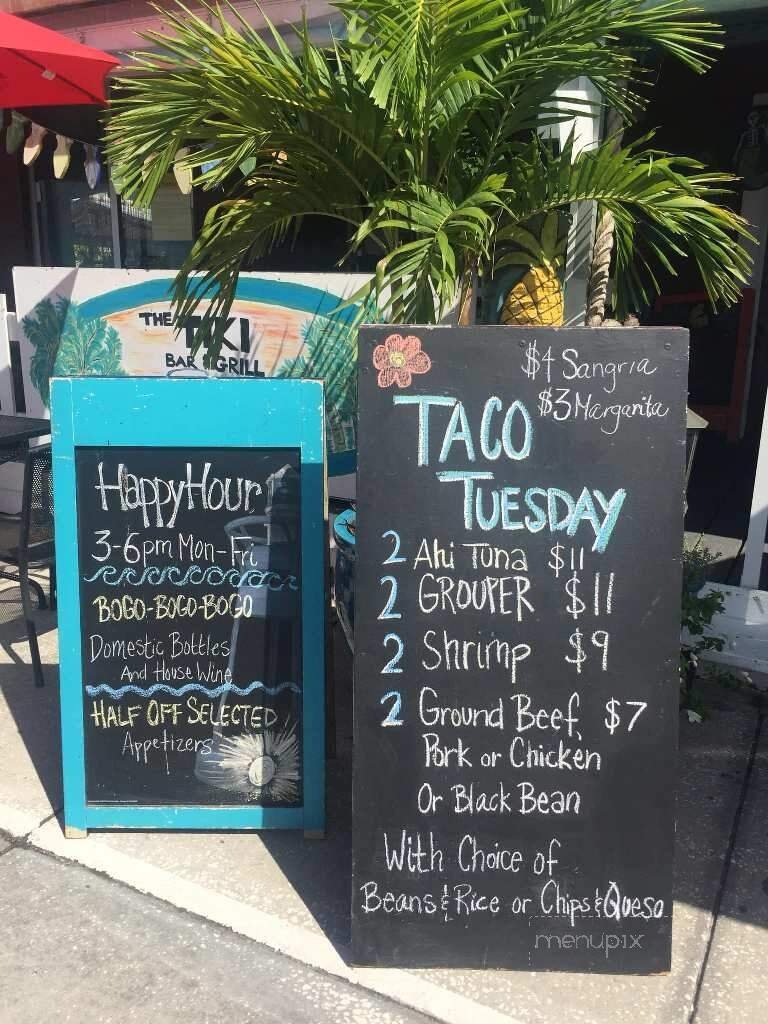 THE TIKI
BAR & GRILL
Happy Hour
3-6pm Mon-Fri
BOGO-BOGO-BOGO
Domestic Bottles
And House Wine
HALF OFF SELECTED
Appetizers
$4 Sangria
$3 Margarita
TACO
TUESDAY
2 Ahi Tuna $11
2 GROUPER $11
2 Shrimp $9
2 Ground Beef, $7
Pork or Chicken
Or Black Bean
With Choice of
Beans & Rice or Chips & Queso
menupix